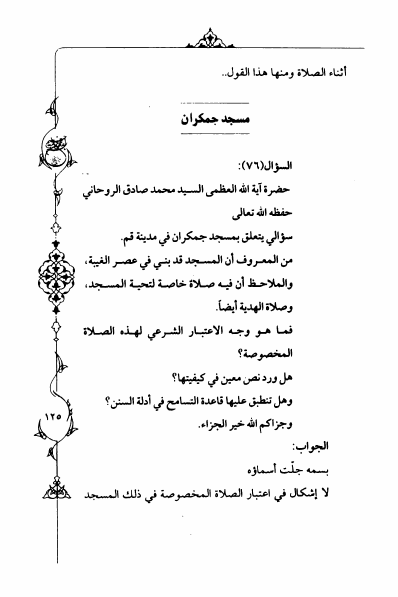 أثناء الصلاة ومنها هذا القول..
مسجد جمكران
السؤال(٧٦):
حضرة آية الله العظمى السيد محمد صادق الروحاني
حفظه الله تعالى
سؤالي يتعلق بمسجد جمكران في مدينة قم.
من المعروف أن المسجد قد بني في عصر الغيبة،
والملاحظ أن فيه صلاة خاصة لتحية المسجد،
وصلاة الهدية أيضاً.
فما هو وجه الاعتبار الشرعي لهذه الصلاة
المخصوصة؟
هل ورد نص معين في كيفيتها؟
وهل تنطبق عليها قاعدة التسامح في أدلة السنن؟
١٢٥
وجزاكم الله خير الجزاء.
الجواب:
بسمه جلّت أسماؤه
لا إشكال في اعتبار الصلاة المخصوصة في ذلك المسجد